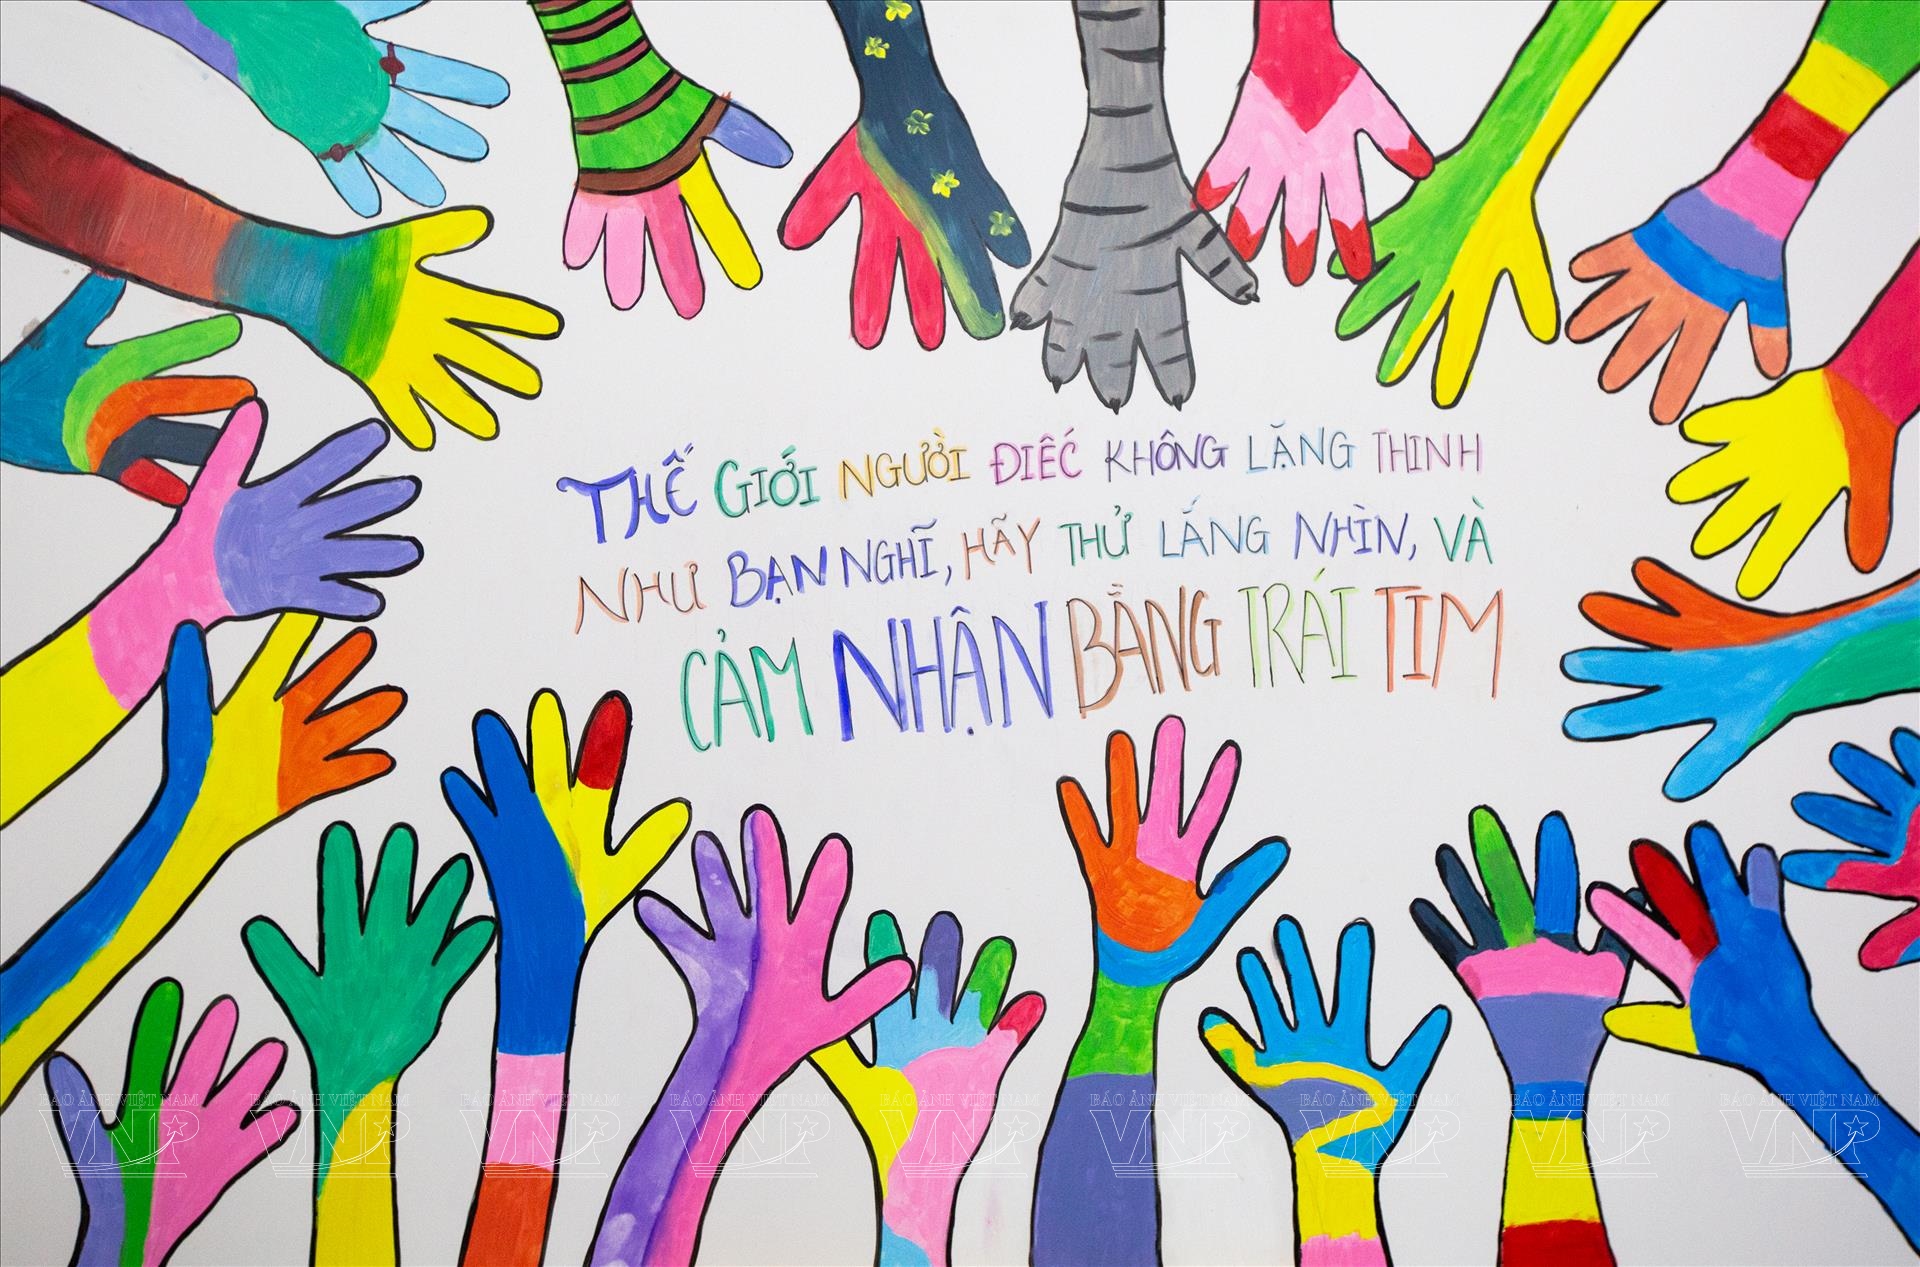 THẾ GIỚI NGƯỜI ĐIẾC KHÔNG LẶNG THINH
NHƯ BẠN NGHĨ, HÃY THỬ LẮNG NHÌN, VÀ
CẢM NHẬN BẰNG TRÁI TIM
BÁO ẢNH VIỆT NAM BÁO ẢNH VIỆT NAM BÁO ẢNH VIỆT NAM BÁO ẢNH VIỆT NAM BÁO ẢNH VIỆT NAM BÁO ẢNH VIỆT NAM BÁO ẢNH VIỆT NAM BÁO ẢNH VIỆT NAM BÁO ẢNH VIỆT NAM
VNP VNP VNP VNP VNP VNP VNP VNP VNP